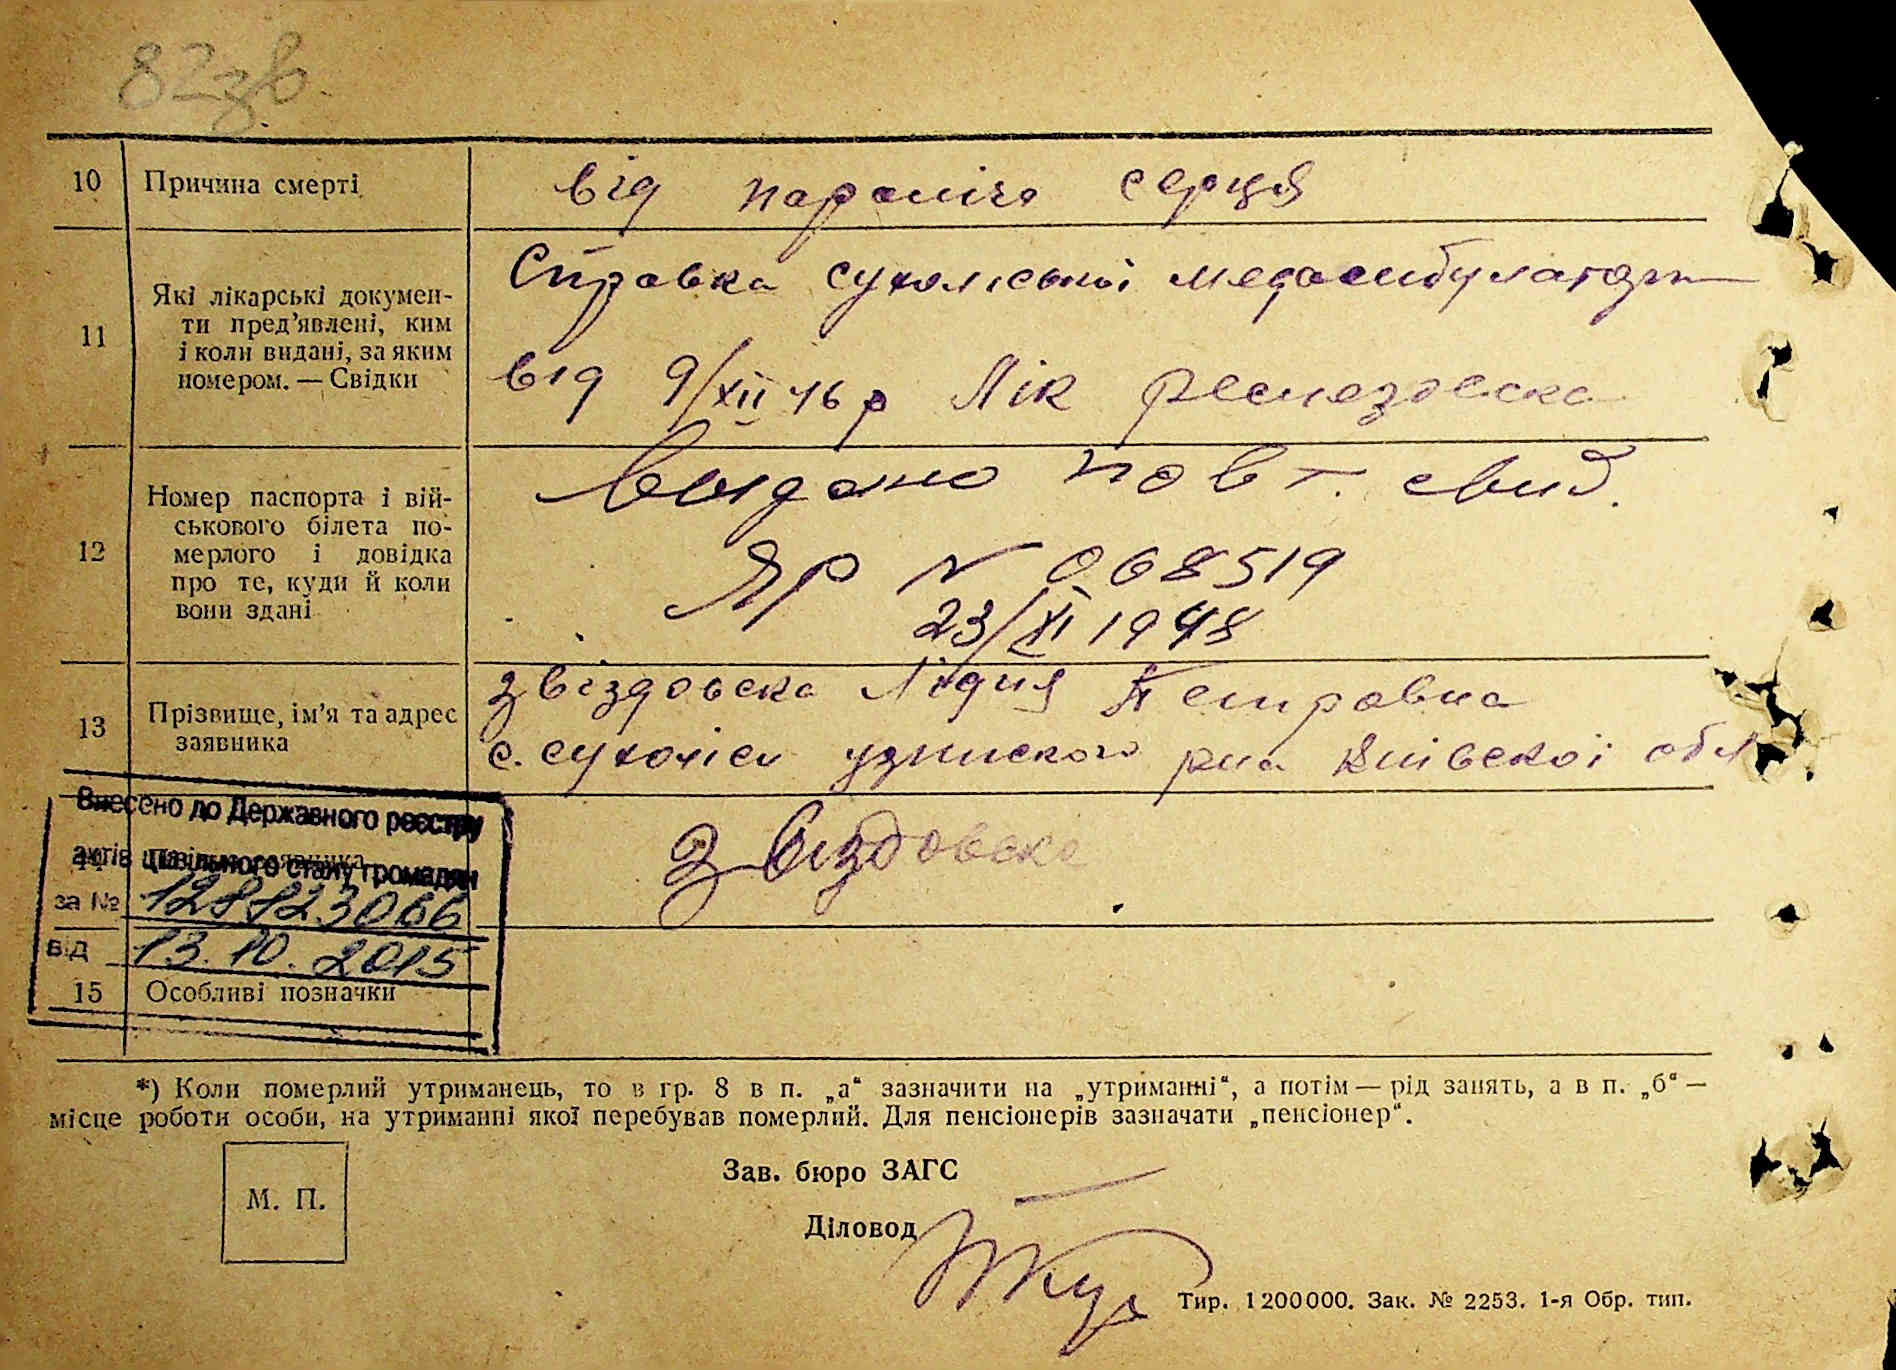 82зв
10 Причина смерті від параліча серця
11 Які лікарські докумен-
ти пред'явлені, ким
і коли видані, за яким
номером. — Свідки
Справка сухоліської медамбулаторії
від 9/XII 46 р Лік
12 Номер паспорта і вій-
ськового білета по-
мерлого і довідка
про те, куди й коли
вони здані
Выдано повт. свид.
ЯР N 068519
23/XI 1948
13 Прізвище, ім'я та адрес
заявника
Звіздовска Лідия Петровна
с. сухоліси узинского рна Київскої обл
Внесено до Державного реєстру
актів цивільного стану громадян
за № 128823066
від 13.10.2015
Звіздовска
15 Особливі позначки
*) Коли померлий утриманець, то в гр. 8 в п. „а“ зазначити на „утриманні“, а потім — рід занять, а в п. „б“ —
місце роботи особи, на утриманні якої перебував померлий. Для пенсіонерів зазначати „пенсіонер“.
М. П.
Зав. бюро ЗАГС
Діловод
Тир. 1200000. Зак. № 2253. 1-я Обр. тип.